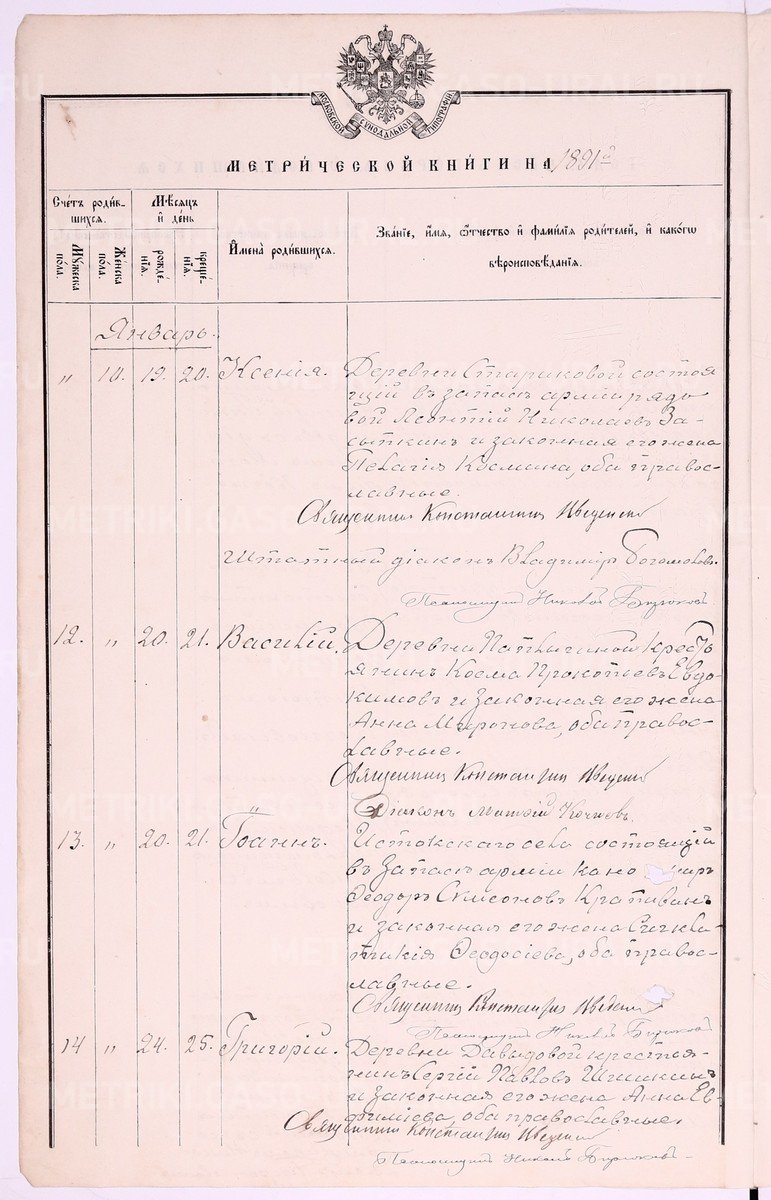 МОСКОВСКОЙ СѴНОДАЛЬНОЙ ТИПОГРАФІИ
МЕТРИ́ЧЕСКОЙ КНИ́ГИ НА 1891 г.
Сче́тъ роди́вшихся.
Мѣ́сяцъ и де́нь
Имена̀ роди́вшихся.
Зва́нїе, и́мя, ѻ́тчество и фами́лїя роди́телей, и како́гѡ вѣроисповѣ́данїя.
Му́жеска по́ла.
Же́нска по́ла.
рожде́нїя.
креще́нїя.
Январь.
" 10. 19. 20. Ксенія. Деревни Стариковой состоя
щій въ запасѣ арміи рядо
вой Леонтій Николаевъ За-
сыпкинъ и законная его жена
Пелагія Космина, оба правос-
лавные.
Священникъ Константинъ Введенскій
Штатный діаконъ Владиміръ Богомоловъ.
Псаломщикъ Николай Бирюковъ.
12. " 20. 21. Василій. Деревни крестъ
янинъ Косма Прокопьевъ Евдо-
кимовъ и законная его жена
Анна Миронова, оба правос-
лавные.
Священникъ Константинъ Введенскій
Діаконъ
13. " 20. 21. Іоаннъ. Истокскаго села состоящій
въ запасѣ арміи кано иръ
Ѳеодоръ Симеоновъ
и законная его жена Синкли-
тикія Ѳеодосіева, оба правос-
лавные.
Священникъ Константинъ Введенскій
Псаломщикъ Николай Бирюковъ
14 " 24. 25. Григорій. Деревни Давыдовой крестья-
нинъ Сергій Павловъ Шишкинъ
и законная его жена Анна Ев-
фиміева, оба православные.
Священникъ Константинъ Введенскій
Псаломщикъ Николай Бирюковъ